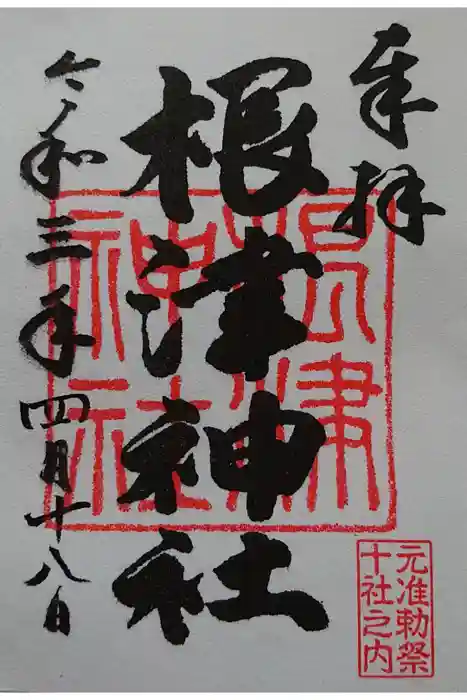 奉拝
根津神社
根津
神社
令和三年四月十八日
元准勅祭
十社之内